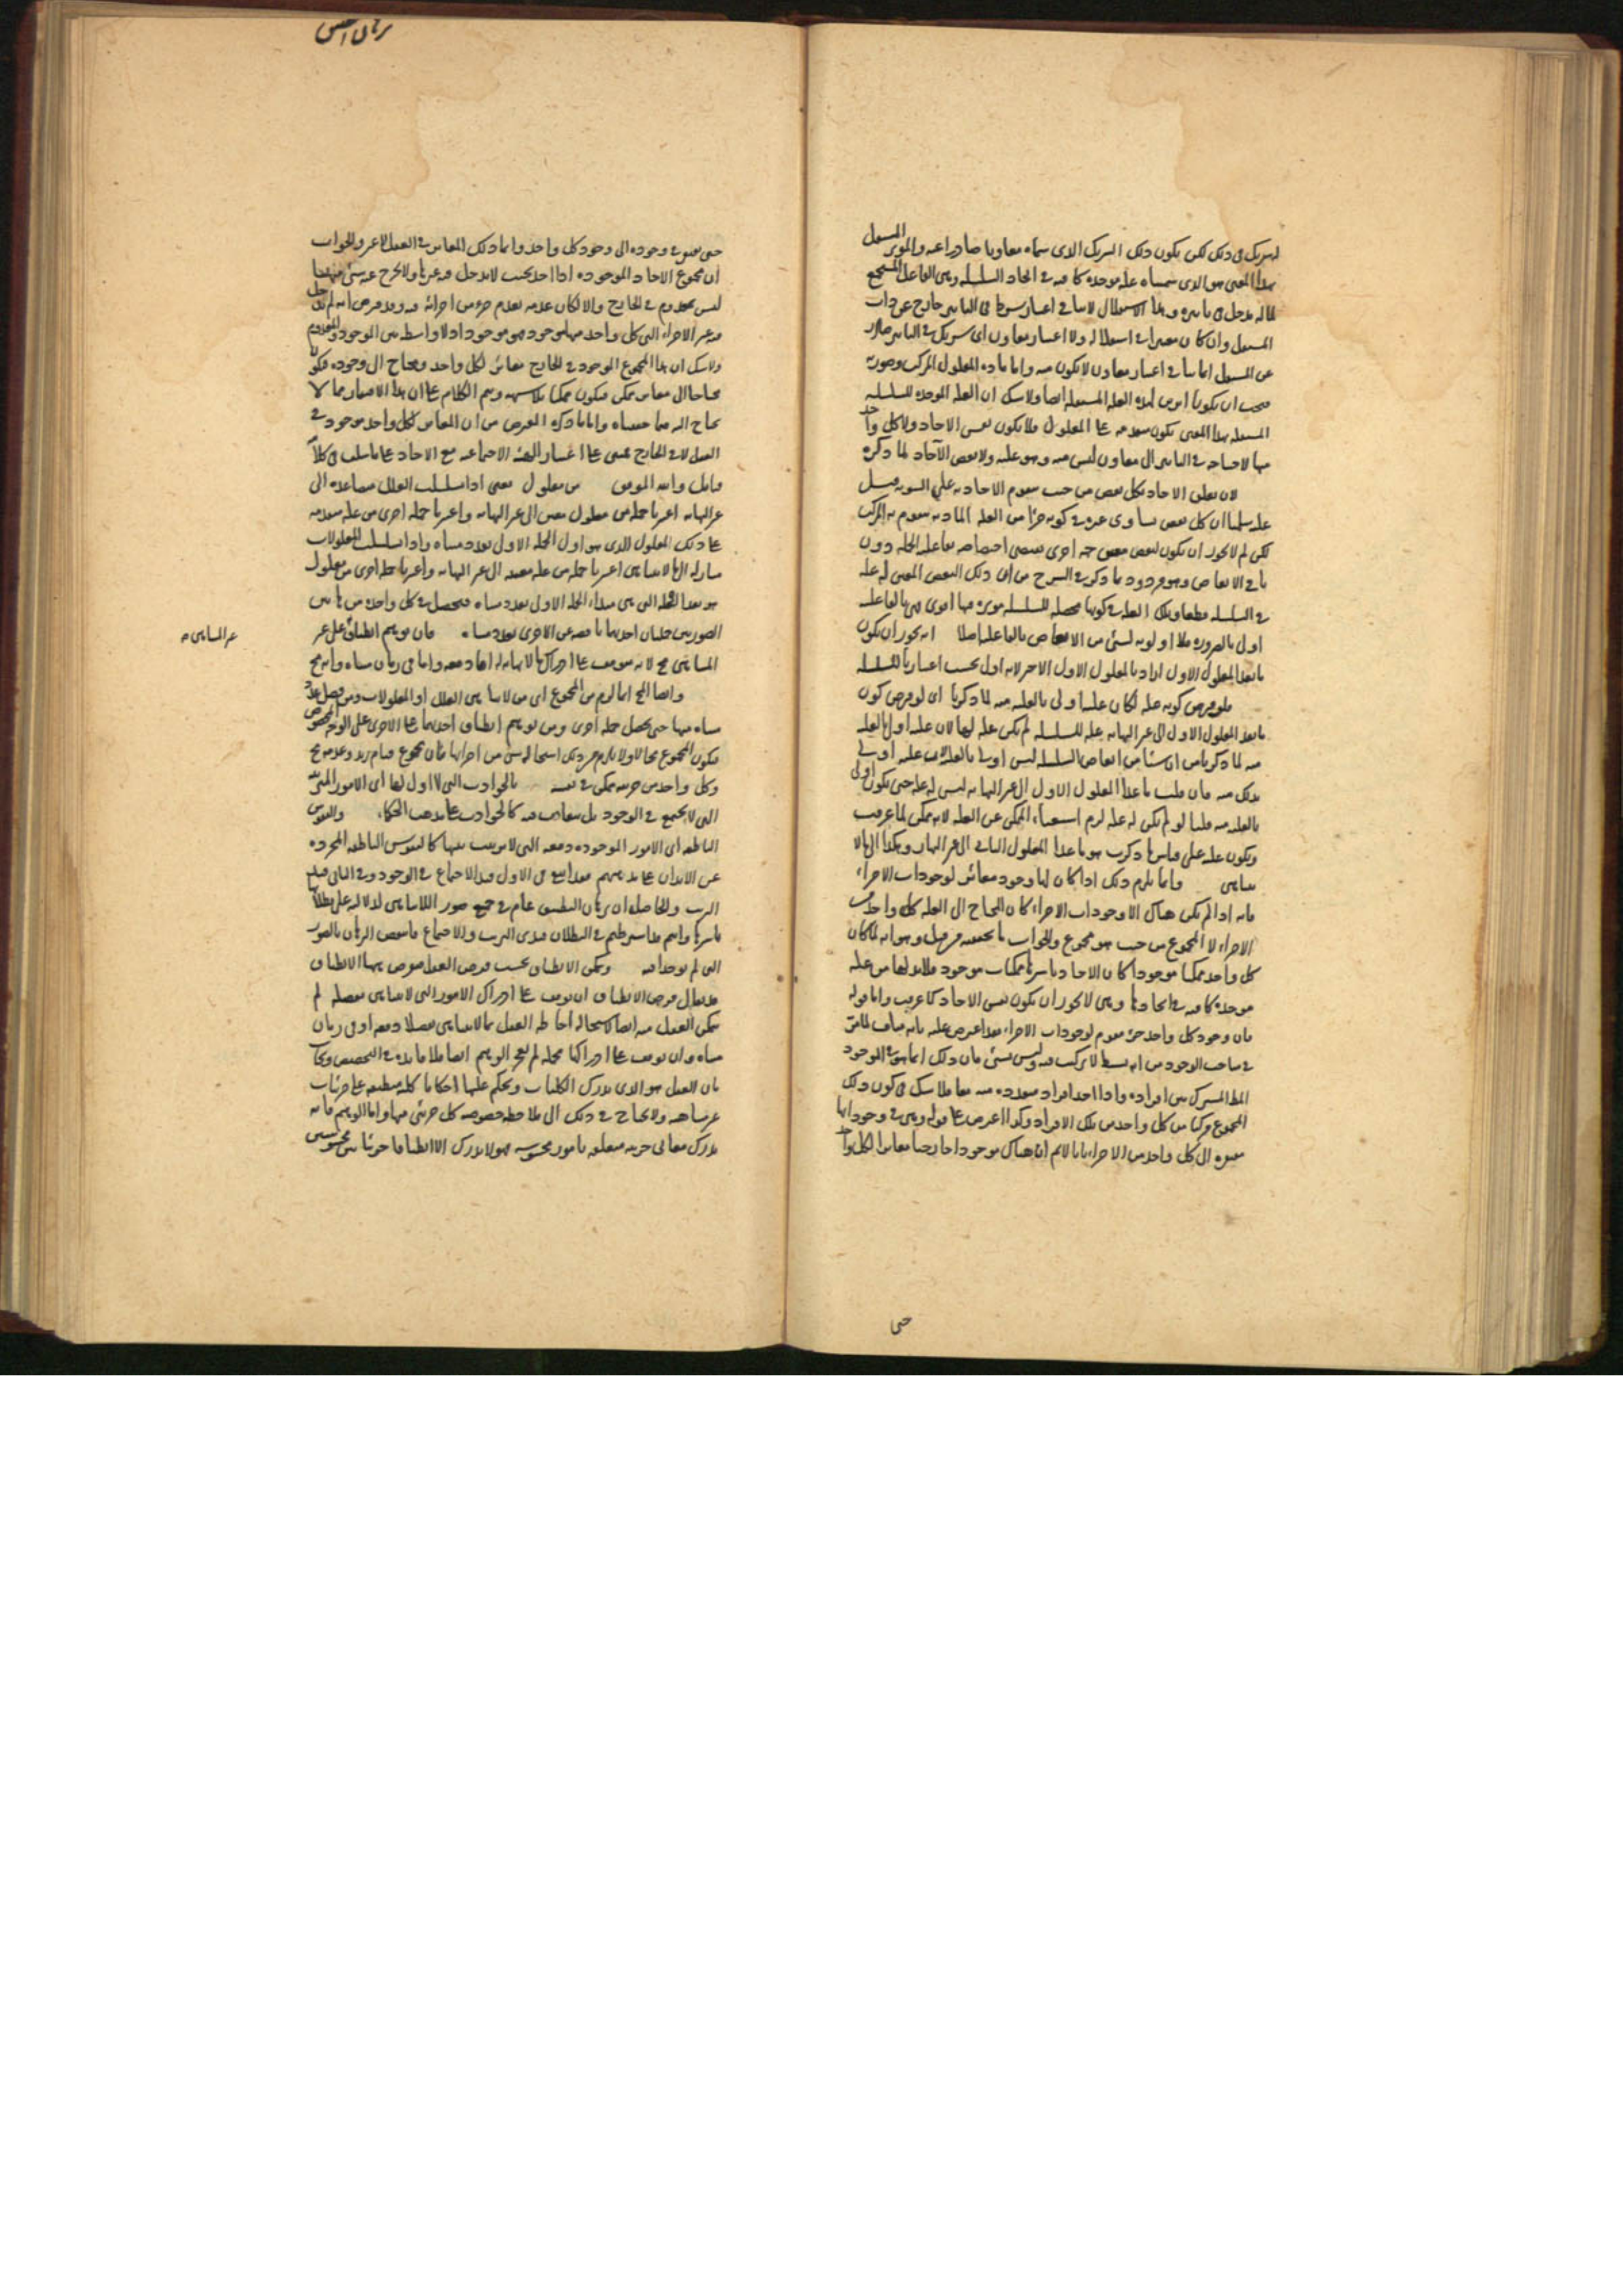 لشريك في ذلك لكن يكون ذلك الشريك الذي سماه معاونا صادرا عنه والموثر المستقل
بهذا المعنى هو الذي سميناه علة موجدة كافية في ايجاد السلسلة وهي الفاعل المستجمع
لما له مدخل في تاثيره وهذا الاستقلال لا ينافي اعتبار شرط في التاثير خارج عن ذات
المستقل وان كان معتبرا في استقلاله ولا اعتبار معاون اي شريك في التاثير صادر
عن المستقل انما ينافي اعتبار معاون لا يكون منه واما مادة المعلول المركب وصورته
فيجب ان يكونا اثرين لهذه العلة المستقلة ايضا ولا شك ان العلة الموجدة للسلسلة
المستقلة بهذا المعنى يكون متقدمة على المعلول فلا يكون نفس الاحاد ولا كل واحد
منها لاحتياجه في التاثير الى معاون ليس منه وهو علته ولا بعض الآحاد لما ذكره
لان تعلق الاحاد بكل بعض من حيث تقوم الاحاد به على السوية قيل
عليه سلمنا ان كل بعض يساوي غيره في كونه جزءا من العلة المادية يتقوم به المركب
لكن لم لا يجوز ان يكون لبعض معين جهة اخرى يقتضي اختصاصه بفاعلية الجملة دون
باقي الابعاض وهو مردود بما ذكر في الشرح من ان ذلك البعض المعين له علة
في السلسلة قطعا وتلك العلة في كونها محصلة للسلسلة موثرة فيها اقوى فهي بالفاعلية
اولى بالضرورة فلا اولوية لشئ من الابعاض بالفاعلية اصلا انه يجوز ان يكون
ما بعد المعلول الاول اراد بالمعلول الاول الاخير لانه اول بحسب اعتبارنا للسلسلة
فلو فرض كونه علة لكان علته اولى بالعلية منه لما ذكرنا اى لو فرض كون
ما بعد المعلول الاول الى غير النهاية علة للسلسلة لم يكن علة لها لان علته اولى بالعلية
منه لما ذكرنا من ان شيئا من ابعاض السلسلة ليس اولى بالعلية لان علته اولى
بذلك منه فان قلت ما عدا المعلول الاول الى غير النهاية ليس له علة حتى يكون اولى
بالعلية منه قلنا لو لم يكن له علة لزم استغناء الممكن عن العلة لانه ممكن لما عرفت
ويكون علته على قياس ما ذكرت هو ما عدا المعلول الثاني الى غير النهاية وهكذا الى ما لا
يتناهى وانما يلزم ذلك اذا كان لها وجود مغائر لوجودات الاجزاء
فانه اذا لم يكن هناك الا وجودات الاجزاء كان المحتاج الى العلة كل واحد من
الاجزاء لا المجموع من حيث هو مجموع والجواب ما تحققته من قبل وهو انه لما كان
كل واحد ممكنا موجودا كان الاحاد باسرها ممكنات موجودة فلا بد لها من علة
موجدة كافية في ايجادها وهي لا يجوز ان يكون نفس الاحاد كما عرفت واما قوله
فان وجود كل واحد جزء مقوم لوجودات الاجزاء فقد اعترض عليه بانه مناف لما مر
في مباحث الوجود من انه بسيط لا تركيب فيه وليس بشئ فان ذلك انما هو في الوجود
المطلق المشترك بين افراده واذا اخذ افراد متعددة منه معا فلا شك في كون ذلك
المجموع مركبا من كل واحد من تلك الافراد وكذا اعترض على قوله وهي في وجودها
مفتقرة الى كل واحد من الاجزاء بانا لا نم ان هناك موجودا خارجيا مغائرا لكل واحد
حتى
برهان التطبيق
حتى يفتقر في وجوده الى وجود كل واحد وانما ذلك المغائر في العقل لا غير والجواب
ان مجموع الاحاد الموجودة اذا اخذ بحيث لا يدخل فيه غيرها ولا يخرج عنه شئ منها
ليس بمعدوم في الخارج والا لكان عدمه بعدم جزء من اجزائه فيه وقد فرض انه لم يدخل
فيه غير الاجزاء التي كل واحد منها موجود فهو موجود اذ لا واسطة بين الموجود والمعدوم
ولا شك ان هذا المجموع الموجود في الخارج مغائر لكل واحد ومحتاج الى وجوده فيكون
محتاجا الى مغائر ممكن فيكون ممكنا بلا شبهة ويتم الكلام على ان هذا الافتقار مما لا
يحتاج اليه فيما حققناه واما ما ذكره المعترض من ان المغائر لكل واحد موجود في
العقل لا في الخارج فمبني على اعتبار الهيئة الاجتماعية مع الاحاد على ما سلف في كلام
قائل والله الموفق من معلول يعني اذا تسلسلت العلل متصاعدة الى
غير النهاية اعتبرنا جملة من معلول معين الى غير النهاية واعتبرنا جملة اخرى من علة متقدمة
على ذلك المعلول الذي هو اول الجملة الاولى بعدد متناه واذا تسلسلت المعلولات
متنازلة الى ما لا يتناهى اعتبرنا جملة من علة معينة الى غير النهاية واعتبرنا جملة اخرى من معلول
هو بعد العلة التي هي مبداء الجملة الاولى بعدد متناه فيحصل في كل واحدة من هاتين
الصورتين جملتان احديهما ناقصة عن الاخرى بعدد متناه فان توهم انطباق على غير
غير المتناهى صح
المتناهى مح لانه يتوقف على ادراك ما لا نهاية له اما دفعة واما في زمان متناه وانه مح
وايضا المح انما لزم من المجموع اى من لا تناهى العلل او المعلولات ومن فصل عدد
متناه منها حتى يحصل جملة اخرى ومن توهم انطباق احديهما على الاخرى على الوجه المخصوص
فيكون المجموع محالا ولا يلزم من ذلك استحالة شئ من اجزائها فان مجموع قيام زيد وعدمه مح
وكل واحد من جزئيه ممكن في نفسه بالحوادث التي لا اول لها اى الامور المترتبة
التي لا يجتمع في الوجود بل يتعاقب فيه كالحوادث على مذهب الحكماء والنفوس
الناطقة اى الامور الموجودة دفعة التي لا ترتيب بينها كالنفوس الناطقة المجردة
عن الابدان على مذهبهم فقد انتفى في الاول قيد الاجتماع في الوجود وفي الثاني قيد
الترتب والحاصل ان برهان التطبيق عام في جميع صور اللاتناهى لدلالته على بطلانها
باسرها وانتم قد اشترطتم في البطلان قيدى الترتب والاجتماع فانتقض البرهان بالصور
التي لم يوجدا فيه ويمكن الانطباق بحسب فرض العقل فرض بهما الانطباق
قد يقال فرض الانطباق ان توقف على ادراك الامور التي لا يتناهى مفصلة لم
يمكن العقل منه ايضا لاستحالة احاطة العقل بما لا يتناهى مفصلا دفعة او في زمان
متناه وان توقف على ادراكها مجملة لم يعجز الوهم ايضا فلا فائدة في التخصيص ويجاب
بان العقل هو الذي يدرك الكليات ويحكم عليها احكاما كلية منطبقة على جزئيات
غير متناهية ولا يحتاج في ذلك الى ملاحظة خصوصية كل جزئى منها واما الوهم فانه
يدرك معاني جزئية متعلقة بامور محسوسة فهو لا يدرك الا انطباقا جزئيا بين محسوسين